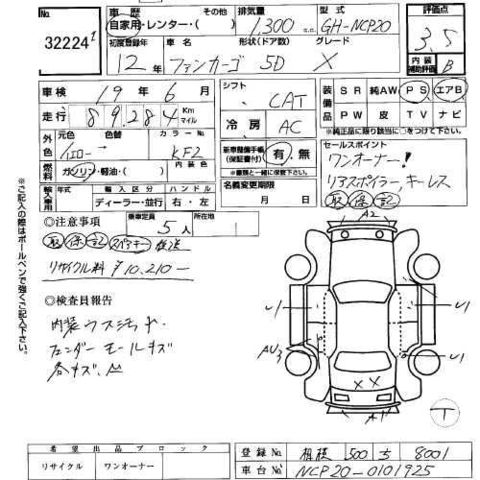 No. 車歴 その他 排気量 型式 評価点
32224 1 自家用・レンター・( ) 1,300 cc GH-NCP20 3.5
初度登録年 車名 形状(ドア数) グレード
12年 ファンカーゴ 5D X 内装補助評価 B
車検 19年 6月 シフト CAT 装備品 SR 純AW PS エアB
走行 89,284 Km マイル 冷房 AC PW 皮 TV ナビ
※純正品に限り該当に○で囲む
外色 元色 色替 カラーNo. 新車整備手帳(保証書付) 有・無 セールスポイント
イエロー KF2 ※書類と一緒に保管して下さい。 ワンオーナー!
燃料 ガソリン・軽油・( ) 内装色 名義変更期限 リアスポイラー,キーレス
輸入車用 年式 輸入区分 ハンドル 月 日 取 保 記
年 ディーラー・並行 右・左
◎注意事項 乗車定員 5人 所在地
取 保 記 スペアキー 後送 A2
リサイクル料 ¥10,210-
◎検査員報告
内装ウスミヨゴレ
フェンダーモールキズ
各キズ、凹
AU3
X X
A1
T
※ご記入の際はボールペンで強くご記入下さい。
希望出品ブロック 登録No. 相模 500 す 8001
リサイクル ワンオーナー 車台No. NCP20-0101925